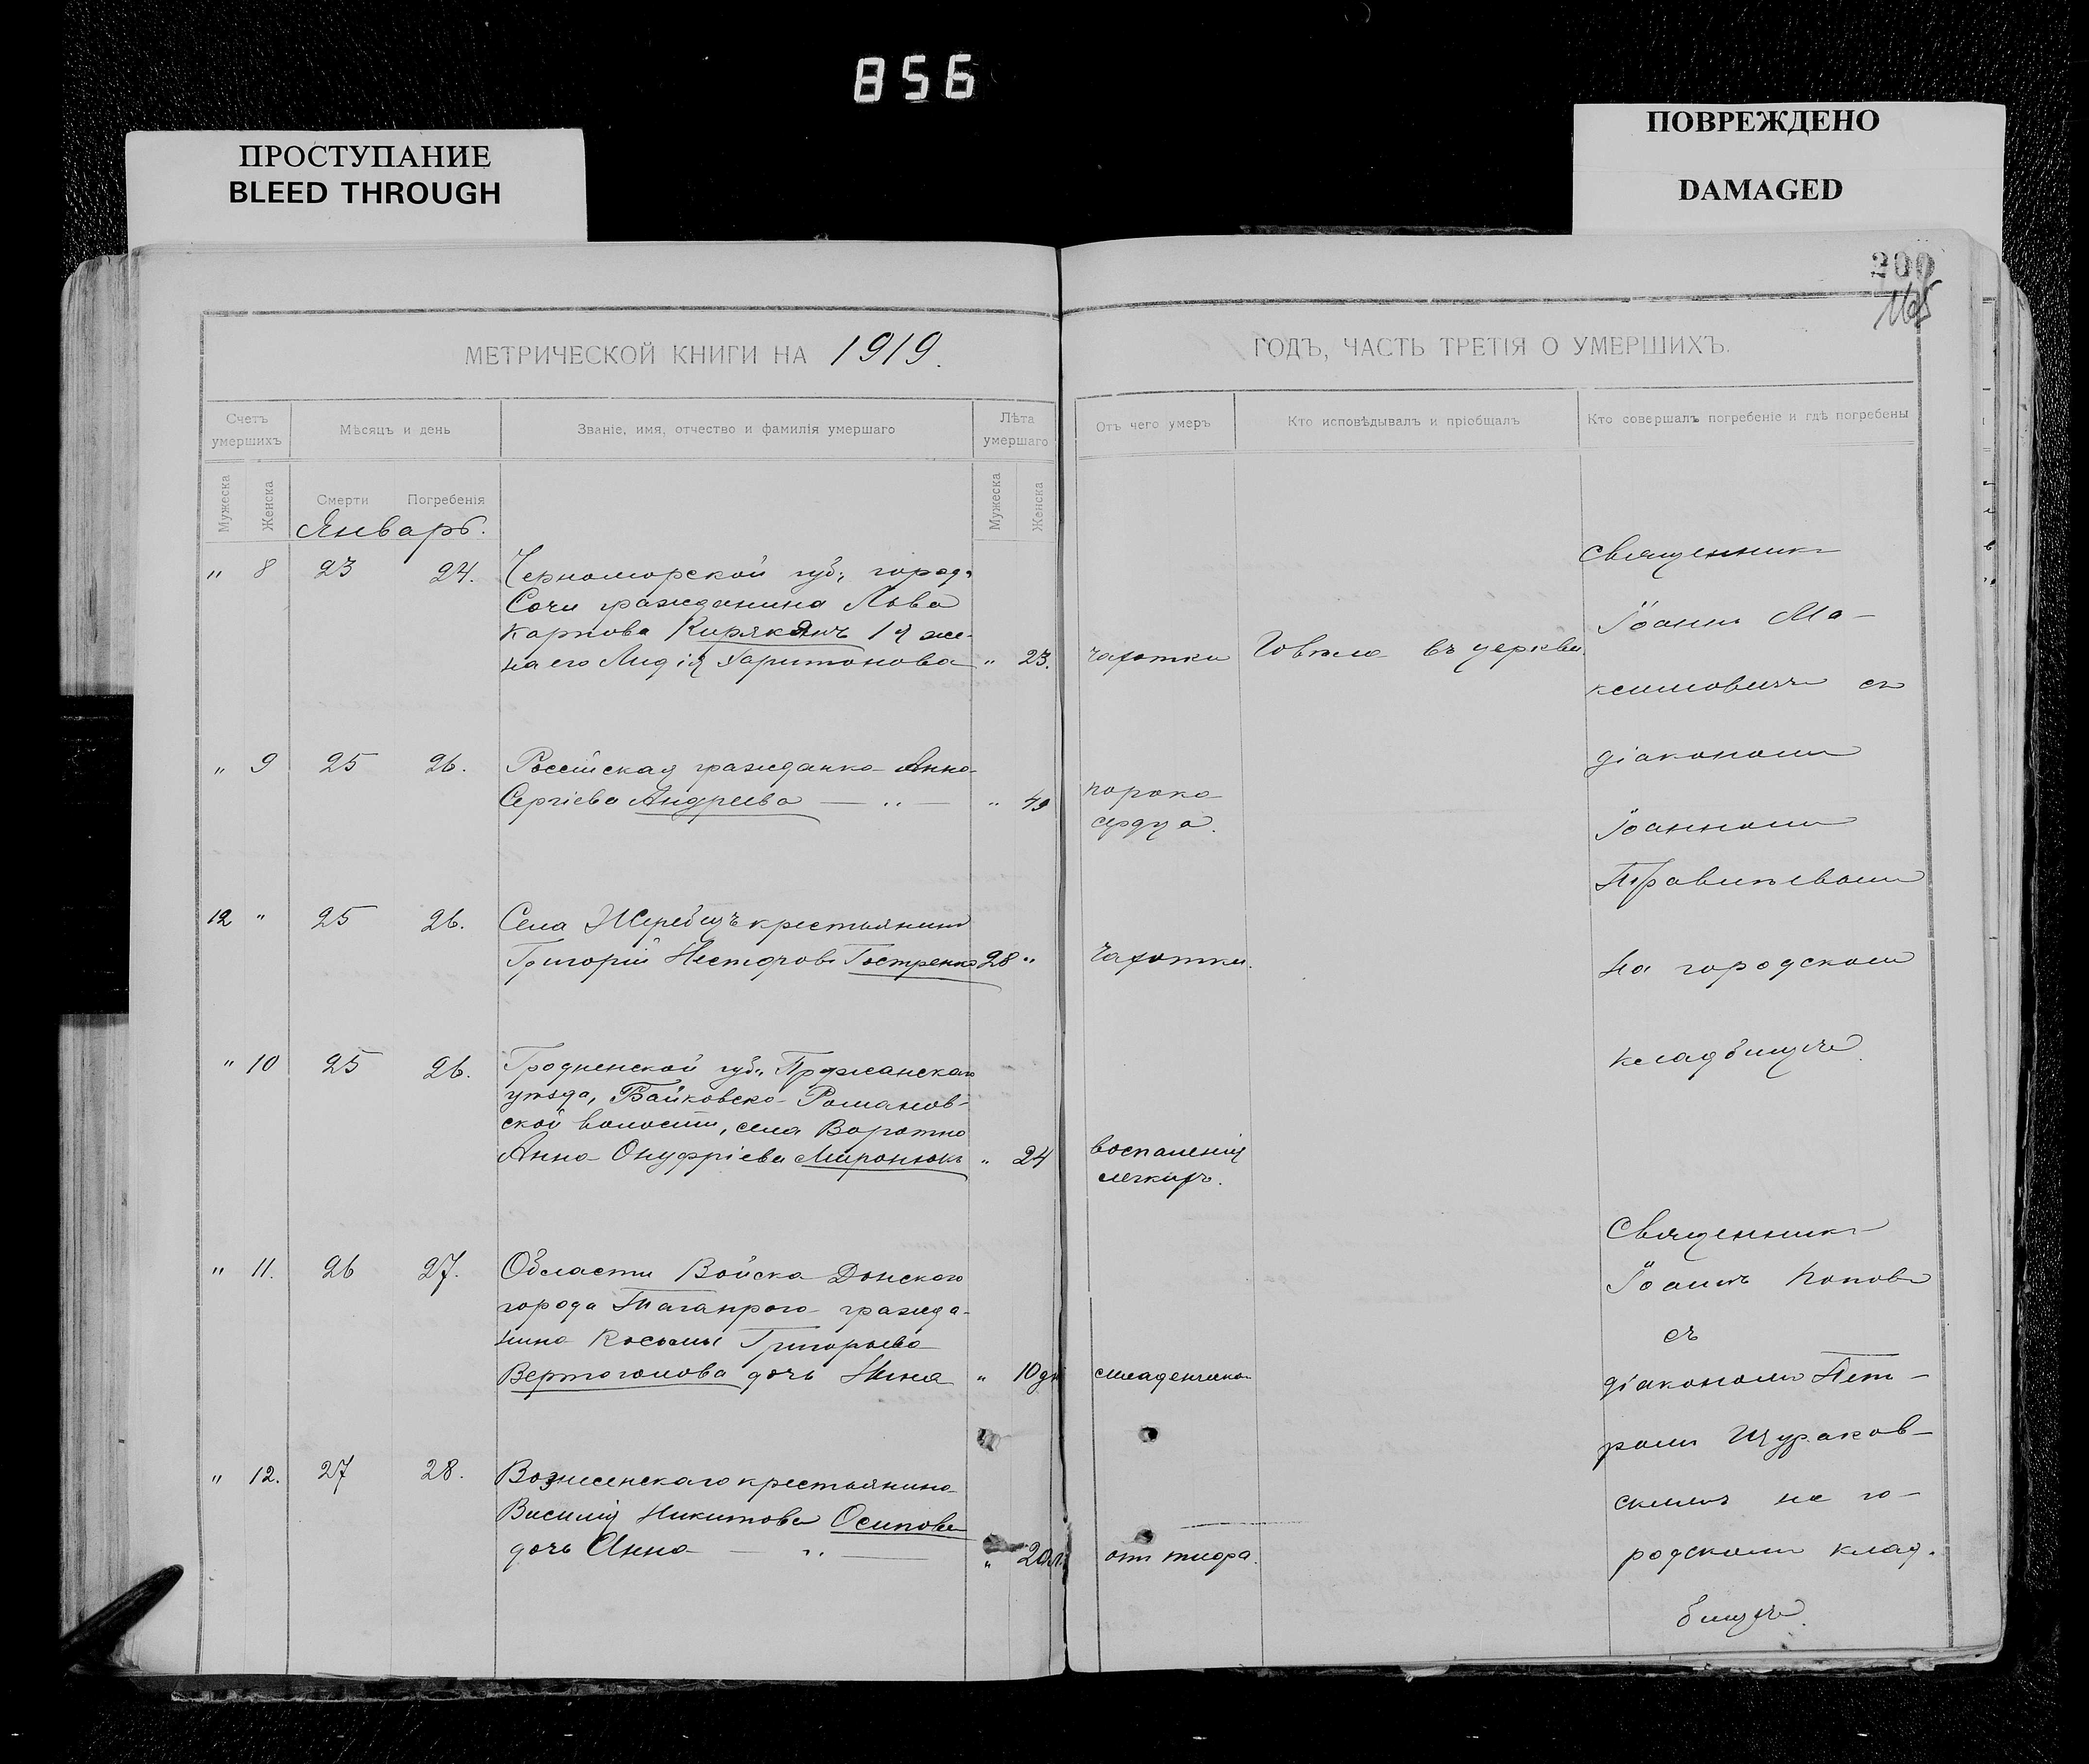 856
ПРОСТУПАНИЕ
BLEED THROUGH
ПОВРЕЖДЕНО
DAMAGED
200
165
МЕТРИЧЕСКОЙ КНИГИ НА 1919.
ГОДЪ, ЧАСТЬ ТРЕТІЯ О УМЕРШИХЪ.
Счетъ умершихъ
Мѣсяцъ и день
Званіе, имя, отчество и фамилія умершаго
Лѣта умершаго
Отъ чего умеръ
Кто исповѣдывалъ и пріобщалъ
Кто совершалъ погребеніе и гдѣ погребены
Мужеска
Женска
Смерти
Погребенія
Мужеска
Женска
Январь.
" 8 23 24. Черноморской губ., город.
Сочи гражданина Льва
Карпова 1я же-
на его Лидія Харитонова " 23. чахотки Говѣла въ церкви.
" 9 25 26. Россійская гражданка Анна
Сергіева Андреева — " — " 49 порока
сердца.
12 " 25 26. Села Жеребецъ крестьянинъ
Григорій Несторовъ Гостренко 28 " Чахотки.
" 10 25 26. Гродненской губ., Пружанскаго
уѣзда, Байковско-Романов-
ской волости, села Воротно
Анна Онуфріева Миронюкъ " 24 воспаленія
легкихъ.
" 11. 26 27. Области Войска Донского
города Таганрога гражда-
нина Косьмы Григорьева
Вертоголова дочь Нина " 10 дн младенческ.
" 12. 27 28. Вознесенскаго крестьянина
Василія Никитова Осипова
дочь Анна — " — " 20 л. отъ тифа.
Священникъ
Іоаннъ Ма-
ксимовичъ съ
діакономъ
Іоанномъ
на городскомъ
кладбищѣ.
Священникъ
Іоаннъ Поповъ
съ
діакономъ Пет-
ромъ Щураков-
скимъ на го-
родскомъ клад-
бищѣ.